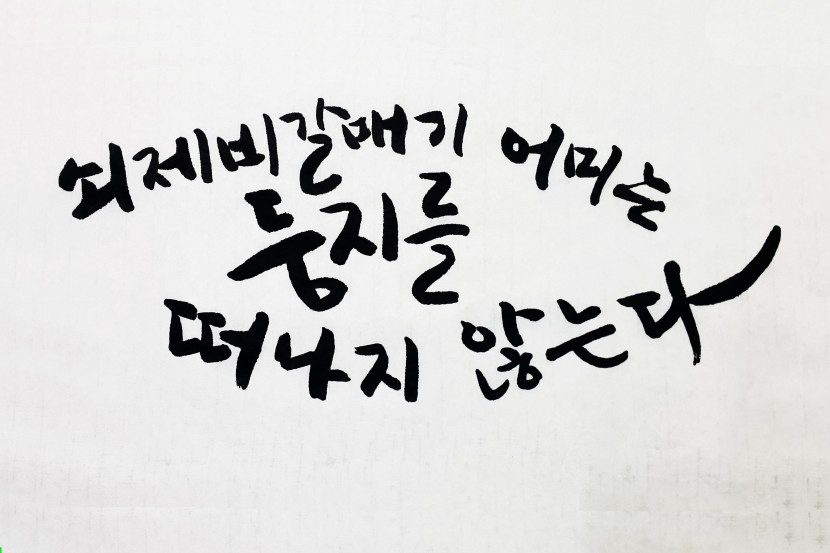 쇠제비갈매기 어미는
둥지를
떠나지 않는다